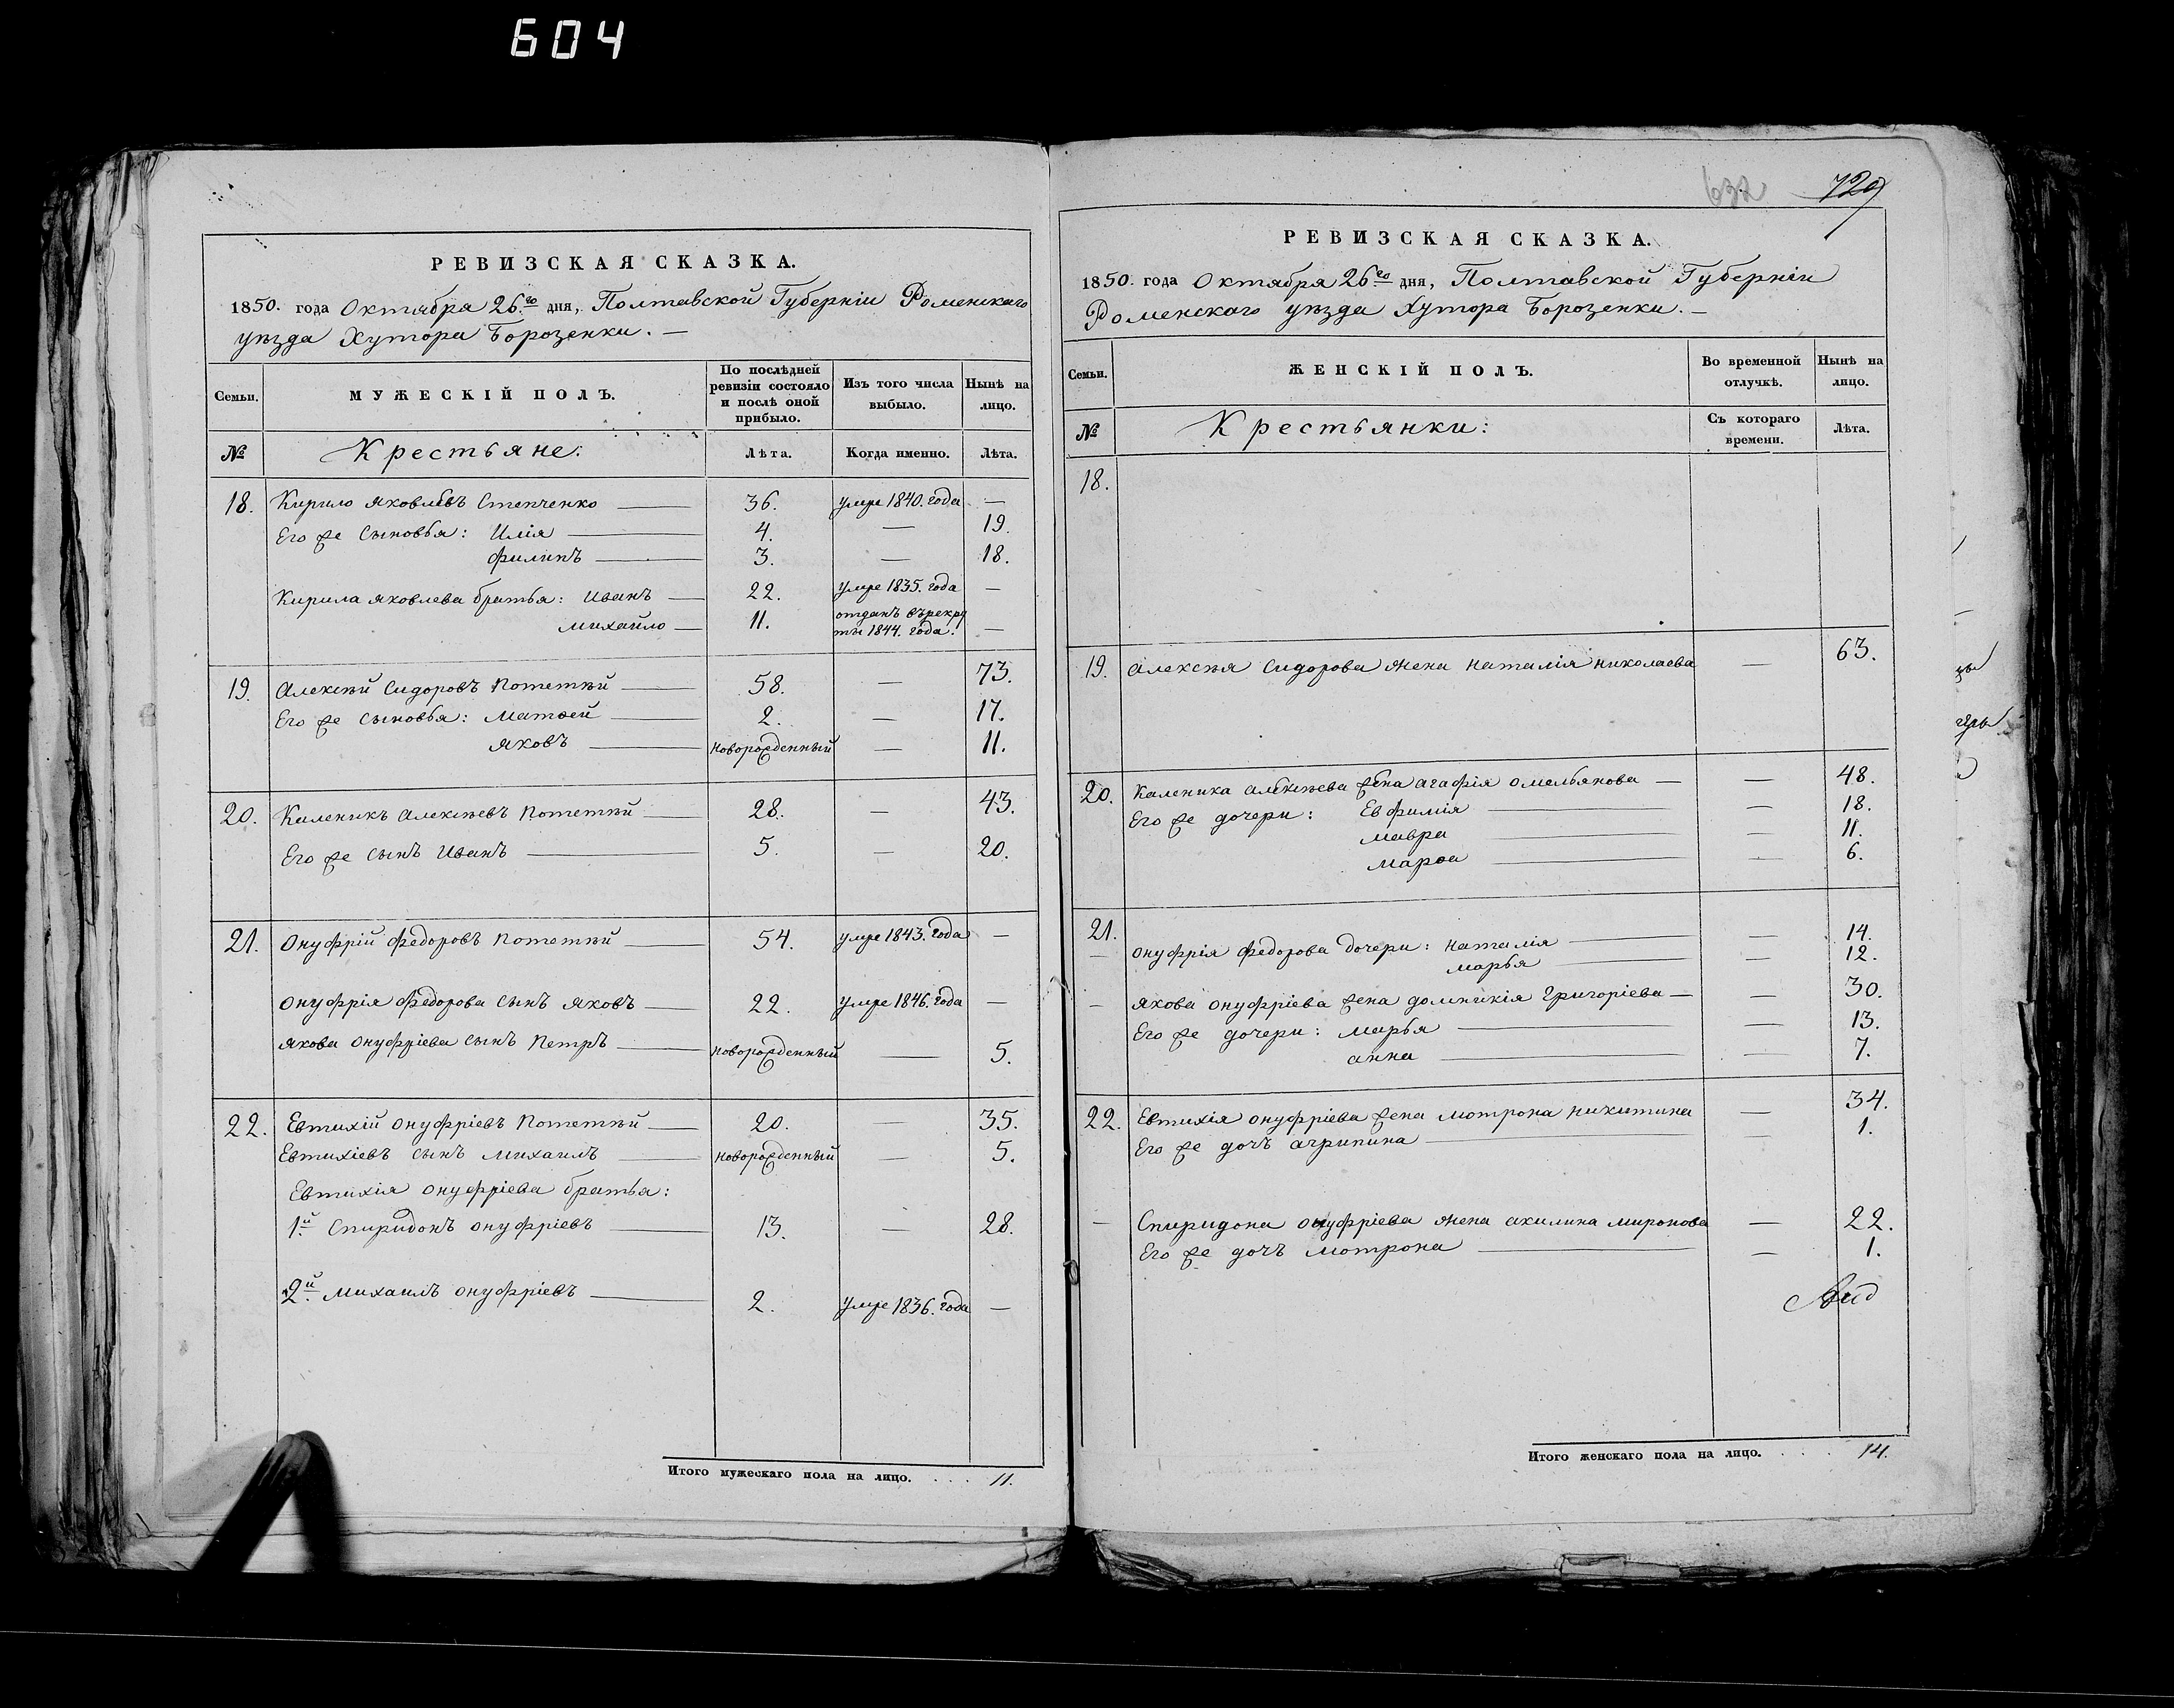 604
РЕВИЗСКАЯ СКАЗКА.
1850. года Октября 26.го дня, Полтавской Губерніи Роменскаго
уѣзда Хутора Борозенки. —
Семьи.
МУЖЕСКІЙ ПОЛЪ.
По послѣдней
ревизіи состояло
и послѣ оной
прибыло.
Изъ того числа
выбыло.
Нынѣ на
лицо.
№
Крестьяне:
Лѣта.
Когда именно.
Лѣта.
18. Кирило Яковлевъ Степченко — 36. умре 1840. года —
Его же сыновья: Илія — 4. — 19.
Филипъ — 3. — 18.
Кирила Яковлева братья: Иванъ — 22. умре 1835. года —
Михайло — 11. отданъ върекру
ты 1844. года. —
19. Алексѣй Сидоровъ Потетѣй — 58. — 73.
Его же сыновья: Матвей — 2. — 17.
Яковъ — новорожденный — 11.
20. Каленикъ Алексѣевъ Потетѣй — 28. — 43.
Его же сынъ Иванъ — 5. — 20.
21. Онуфрій Федоровъ Потетѣй — 54. умре 1843. года —
Онуфрія Федорова сынъ Яковъ — 22. умре 1846. года —
Якова Онуфріева сынъ Петръ — новорожденный — 5.
22. Евтихій Онуфріевъ Потетѣй — 20. 35.
Евтихіевъ сынъ Михаилъ — новорожденный — 5.
Евтихія Онуфріева братья:
1й Спиридонъ Онуфріевъ — 13. — 28.
2й Михаилъ Онуфріевъ — 2. умре 1836. года —
Итого мужескаго пола на лицо. . . . 11.
632 729
РЕВИЗСКАЯ СКАЗКА.
1850. года Октября 26го дня, Полтавской Губерніи
Роменскаго уѣзда Хутора Борозенки. —
Семьи.
ЖЕНСКІЙ ПОЛЪ.
Во временной
отлучкѣ.
Нынѣ на
лицо.
№
Крестьянки:
Съ котораго
времени.
Лѣта.
18.
19. Алексѣя Сидорова жена Наталія Николаева — 63.
20. Каленика Алексѣева жена Агафія Омельянова — — 48.
Его же дочери: Евфимія — — 18.
Мавра — — 11.
Марѳа — — 6.
21. Онуфрія Федорова дочери: Наталія — — 14.
— Марья — — 12.
— Якова Онуфріева жена Домникія Григоріева — — 30.
Его же дочери: Марья — — 13.
Анна — — 7.
22. Евтихія Онуфріева жена Мотрона Никитина — 34.
Его же дочъ Агрипина — — 1.
— Спиридона Онуфріева жена Акилина Миронова — 22.
Его же дочъ Мотрона — — 1.
Итого женскаго пола на лицо. . . . . 14.